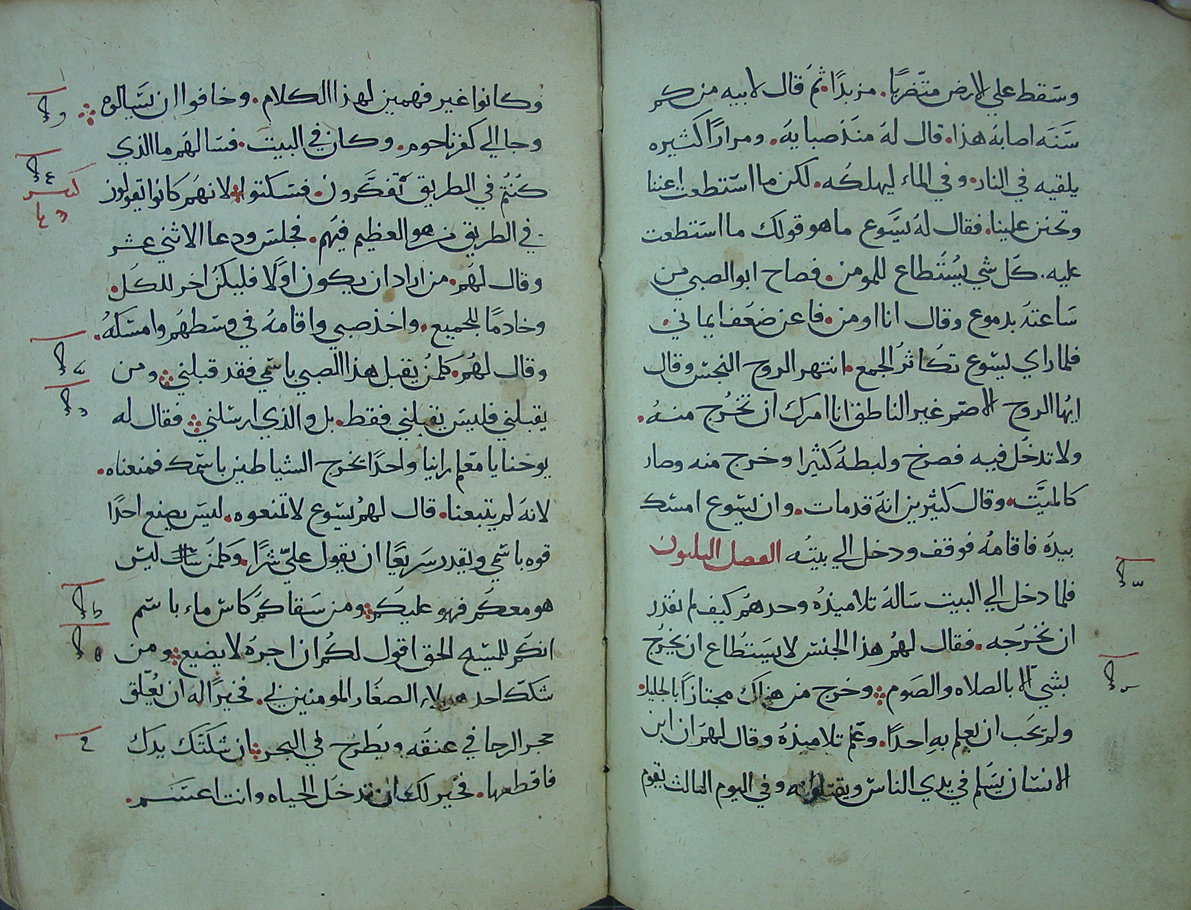 وسقط علي الارض متضربا. مزبدًا. ثم قال لابيه من كم
سنه اصابه هذا. قال له منذ صبايه. ومرارًا كثيره
يلقيه في النار. وفي الماء ليهلكه. لكن ما استطعت اعنا
وتحنن علينا. فقال له يسوع ما هو قولك ما استطعت
عليه. كل شي يستطاع للمومن. فصاح ابو الصبي من
ساعته بدموع وقال انا اومن. فاعن ضعف ايماني.
فلما راي يسوع تكاثر الجمع. انتهر الروح النجس وقال
ايها الروح الاصم غير الناطق انا امرك ان تخرج منه.
ولا تدخل فيه فصرخ ولبطه كثيرا وخرج منه وصار
كالميت. وقال كثيرين انه قد مات. وان يسوع امسك
بيده فاقامه فوقف ودخل الي بيته الفصل
فلما دخل الي البيت ساله تلاميذه وحدهم كيف لم نقدر
ان نخرجه. فقال لهم هذا الجنس لا يستطاع ان يخرج
بشي الا بالصلاه والصوم. وخرج من هناك مجتازًا بالجليل.
ولم يحب ان يعلم به احدًا. وعلم تلاميذه وقال لهم ان ابن
الانسان يسلم في يدي الناس ويقتلونه وفي اليوم الثالث يقوم
وكانوا غير فهمين لهذا الكلام. وخافوا ان يسالوه
وجا الي كفرناحوم. وكان في البيت. فسالهم ما الذي
كنتم في الطريق تفكرون. فسكتوا لانهم كانوا يقولون
في الطريق من هو العظيم فيهم. فجلس ودعا الاثني عشر
وقال لهم. من اراد ان يكون اولا فليكن اخر للكل.
وخادمًا للجميع. واخذ صبي واقامه في وسطهم وامسكه.
وقال لهم. كلمن يقبل هذا الصبي باسمي فقد قبلني ومن
يقبلني فليس يقبلني فقط. بل والذي ارسلني فقال له
يوحنا يا معلم راينا واحدًا يخرج الشياطين باسمك فمنعناه.
لانه لم يتبعنا. قال لهم يسوع لا تمنعوه. ليس يصنع احدًا
قوه باسمي ويقدر سريعًا ان يقول علي شرًا. وكلمن ليس
هو معكم فهو عليكم ومن سقاكم كاس ماء باسم
انكم للمسيح الحق اقول لكم ان اجره لا يضيع ومن
شكك احد هولاء الصغار المومنين بي. فخيرًا له ان يعلق
حجر الرحا في عنقه ويطرح في البحر ان شككتك يدك
فاقطعها. فخير لك ان تدخل الحياه وانت اعسم.